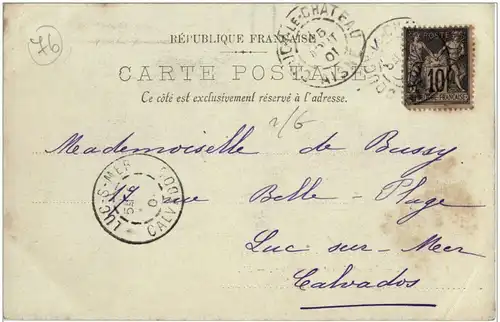 76
RÉPUBLIQUE FRANÇAISE
CARTE POSTALE
Ce côté est exclusivement réservé à l'adresse.
POSTES
10
Mademoiselle de Bussy
17 rue Belle-Plage
Luc sur-Mer
Calvados
LUC-S-MER
CALV